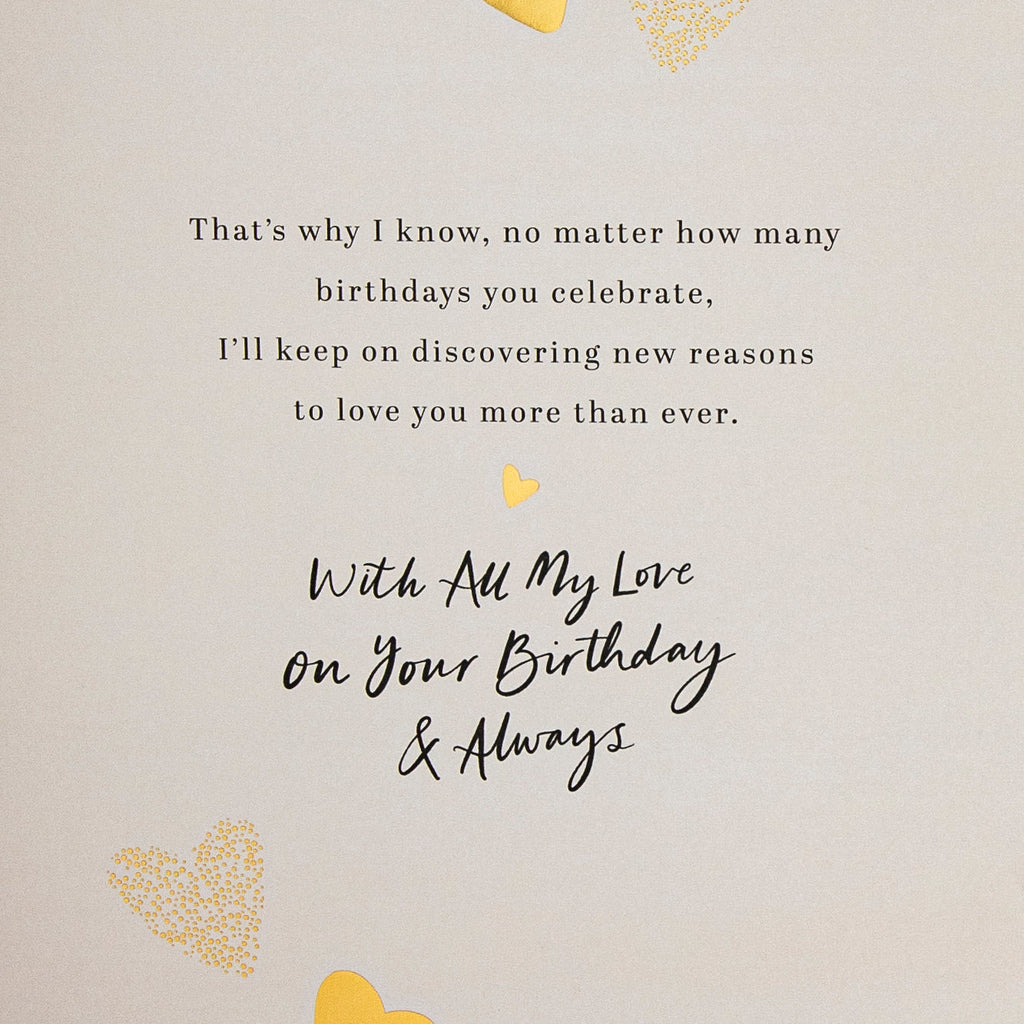 That’s why I know, no matter how many
birthdays you celebrate,
I’ll keep on discovering new reasons
to love you more than ever.
With All My Love
on Your Birthday
& Always